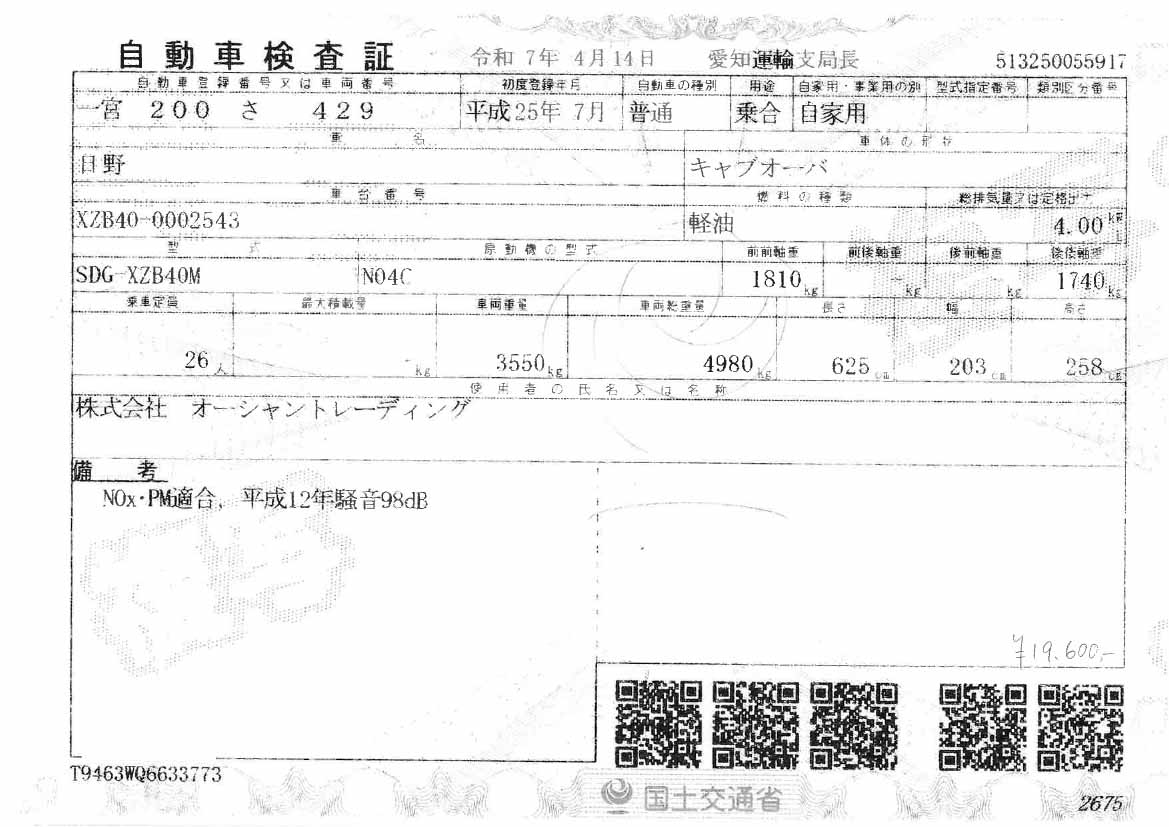 自動車検査証 令和 7年 4月14日 愛知運輸支局長 513250055917
自動車登録番号又は車両番号 初度登録年月 自動車の種別 用途 自家用・事業用の別 型式指定番号 類別区分番号
一宮 200 さ 429 平成25年 7月 普通 乗合 自家用
車名 車体の形状
日野 キャブオーバ
車台番号 燃料の種類 総排気量又は定格出力
XZB40-0002543 軽油 4.00 kW L
型式 原動機の型式 前前軸重 前後軸重 後前軸重 後後軸重
SDG-XZB40M N04C 1810kg -kg -kg 1740kg
乗車定員 最大積載量 車両重量 車両総重量 長さ 幅 高さ
26人 -kg 3550kg 4980kg 625cm 203cm 258cm
使用者の氏名又は名称
株式会社 オーシャントレーディング
備考
NOx・PM適合, 平成12年騒音98dB
¥19,600,-
T9463WQ6633773
国土交通省
2675